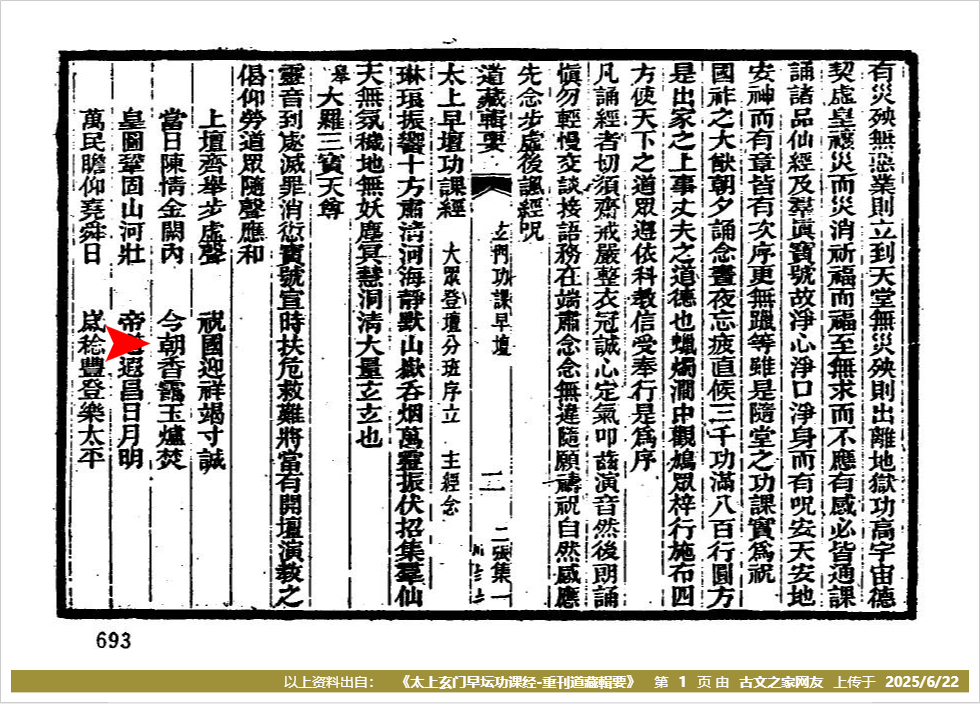 有災殃無惡業則立到天堂無災殃則出離地獄功高宇宙德
契虛皇禳災而災消祈福而福至無求而不應有感必皆通課
誦諸品仙經及羣眞寶號故淨心淨口淨身而有呪安天安地
安神而有章皆有次序更無躐等雖是隨堂之功課寶爲祝
國祚之大猷朝夕誦念晝夜忘疲直候三千功滿八百行圓方
是出家之上事丈夫之道德也蠟燭澗中觀鳩眾梓行施布四
方使天下之道眾遵依科教信受奉行是爲序
凡誦經者切須齋戒嚴整衣冠誠心定氣叩齒演音然後朗誦
愼勿輕慢交談接語務在端肅念念無違隨願禱祝自然感應
先念步虛後諷經呪
道藏輯要 玄門功課早壇 二 二張集一
太上早壇功課經 大眾登壇分班序立 主經念
琳琅振響十方肅清河海靜默山嶽吞烟萬靈振伏招集羣仙
天無氛穢地無妖塵冥慧洞清大量玄玄也
舉大羅三寶天尊
靈音到處滅罪消愆寶號宣時扶危救難將當有開壇演教之
偈仰勞道眾隨聲應和
上壇齊舉步虛聲 祝國迎祥竭寸誠
當日陳情金闕內 今朝香靄玉爐焚
皇圖鞏固山河壯 帝遐昌日月明
萬民瞻仰堯舜日 歲稔豐登樂太平
693
以上资料出自： 《太上玄门早坛功课经-重刊道藏輯要》 第 1 页 由 古文之家网友 上传于 2025/6/22